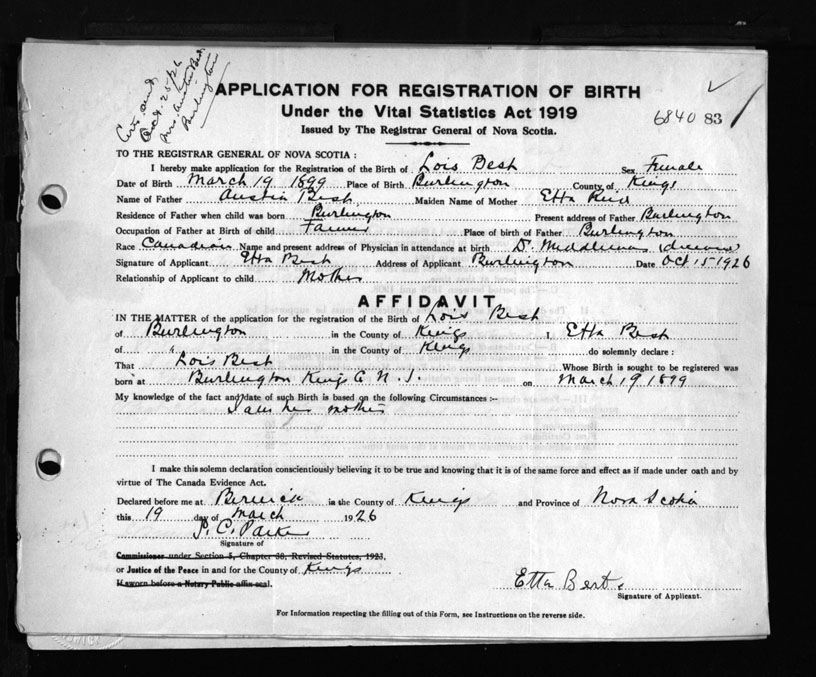 Cert. send
Oct. 25/26
Mrs. Austin Best
Burlington
APPLICATION FOR REGISTRATION OF BIRTH
Under the Vital Statistics Act 1919
Issued by The Registrar General of Nova Scotia.
6840 83
TO THE REGISTRAR GENERAL OF NOVA SCOTIA :
I hereby make application for the Registration of the Birth of Lois Best Sex Female
Date of Birth March 19 1899 Place of Birth Burlington County of Kings
Name of Father Austin Best Maiden Name of Mother Etta
Residence of Father when child was born Burlington Present address of Father Burlington
Occupation of Father at Birth of child Farmer Place of birth of Father Burlington
Race Canadian Name and present address of Physician in attendance at birth Dr. Middlemas
Signature of Applicant Etta Best Address of Applicant Burlington Date Oct 15 1926
Relationship of Applicant to child Mother
AFFIDAVIT
IN THE MATTER of the application for the registration of the Birth of Lois Best
of Burlington in the County of Kings I, Etta Best
of " in the County of Kings do solemnly declare :
That Lois Best Whose Birth is sought to be registered was
born at Burlington Kings Co N. S. on March 19 1899
My knowledge of the fact and date of such Birth is based on the following Circumstances :—
I am her mother
I make this solemn declaration conscientiously believing it to be true and knowing that it is of the same force and effect as if made under oath and by
virtue of The Canada Evidence Act.
Declared before me at Berwick in the County of Kings and Province of Nova Scotia
this 19 day of March 1926
C. Parker
Signature of
Commissioner under Section 5, Chapter 38, Revised Statutes, 1923.
or Justice of the Peace in and for the County of Kings
If sworn before a Notary Public affix seal.
Etta Best
Signature of Applicant.
For Information respecting the filling out of this Form, see Instructions on the reverse side.